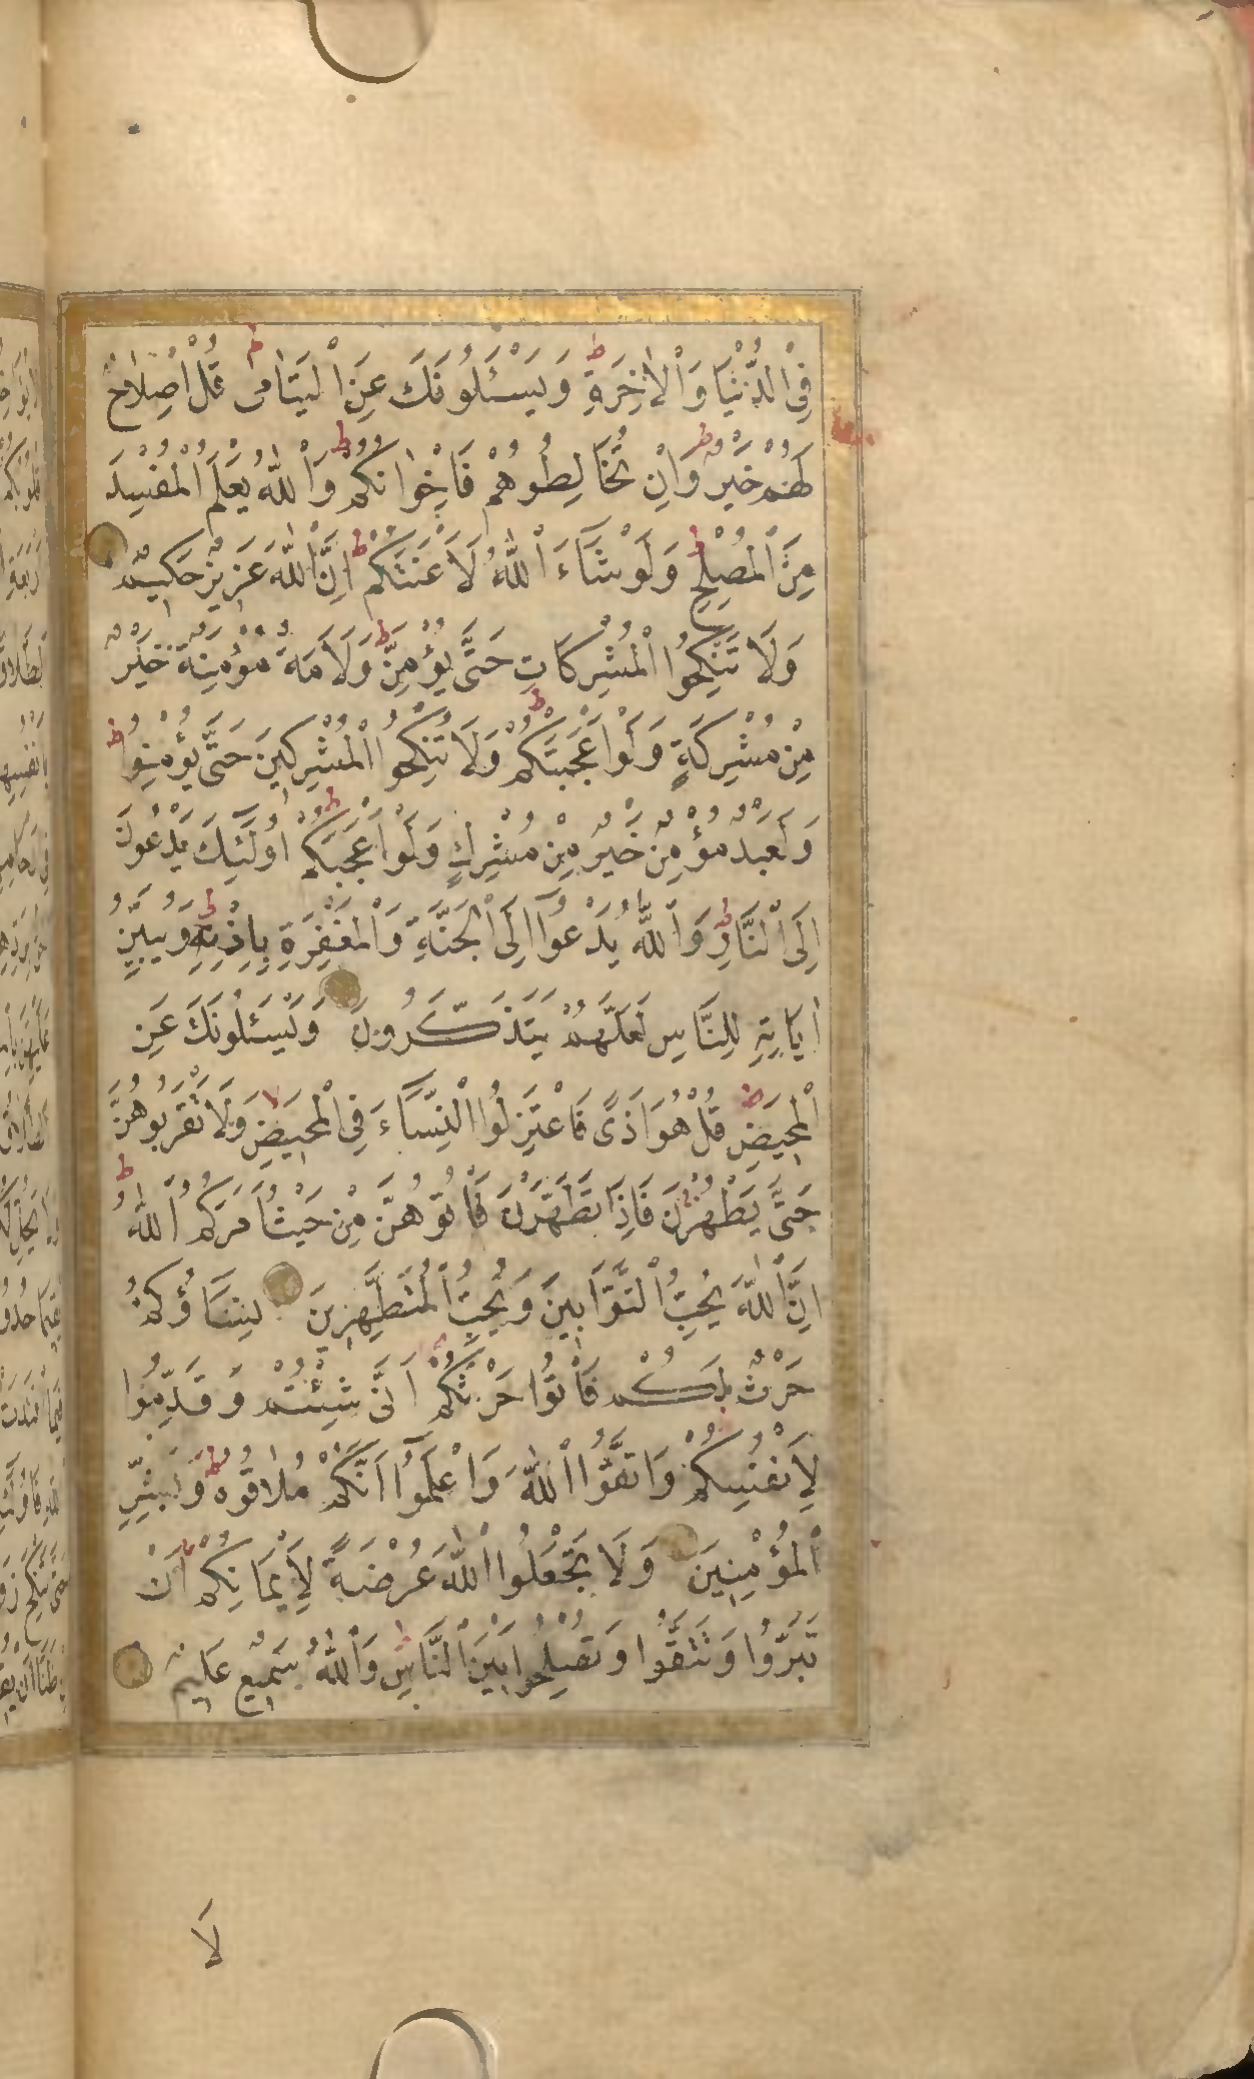 فِي الدُّنْيَا وَالْاٰخِرَةِ ط وَيَسْـَٔلُونَكَ عَنِ الْيَتَامٰى ط قُلْ اِصْلَاحٌ
لَهُمْ خَيْرٌ ط وَاِنْ تُخَالِطُوهُمْ فَاِخْوَانُكُمْ ط وَاللّٰهُ يَعْلَمُ الْمُفْسِدَ
مِنَ الْمُصْلِحِ ط وَلَوْ شَاءَ اللّٰهُ لَاَعْنَتَكُمْ ط اِنَّ اللّٰهَ عَزِيزٌ حَكِيمٌ
وَلَا تَنْكِحُوا الْمُشْرِكَاتِ حَتّٰى يُؤْمِنَّ ط وَلَاَمَةٌ مُؤْمِنَةٌ خَيْرٌ
مِنْ مُشْرِكَةٍ وَلَوْ اَعْجَبَتْكُمْ ط وَلَا تُنْكِحُوا الْمُشْرِكِينَ حَتّٰى يُؤْمِنُوا ط
وَلَعَبْدٌ مُؤْمِنٌ خَيْرٌ مِنْ مُشْرِكٍ وَلَوْ اَعْجَبَكُمْ ط اُولٰٓئِكَ يَدْعُونَ
اِلَى النَّارِ ط وَاللّٰهُ يَدْعُوٓا اِلَى الْجَنَّةِ وَالْمَغْفِرَةِ بِاِذْنِهِ ط وَيُبَيِّنُ
اٰيَاتِهِ لِلنَّاسِ لَعَلَّهُمْ يَتَذَكَّرُونَ وَيَسْـَٔلُونَكَ عَنِ
الْمَحِيضِ ط قُلْ هُوَ اَذًى فَاعْتَزِلُوا النِّسَاءَ فِي الْمَحِيضِ لا وَلَا تَقْرَبُوهُنَّ
حَتّٰى يَطْهُرْنَ فَاِذَا تَطَهَّرْنَ فَأْتُوهُنَّ مِنْ حَيْثُ اَمَرَكُمُ اللّٰهُ ط
اِنَّ اللّٰهَ يُحِبُّ التَّوَّابِينَ وَيُحِبُّ الْمُتَطَهِّرِينَ نِسَاؤُكُمْ
حَرْثٌ لَكُمْ فَأْتُوا حَرْثَكُمْ اَنّٰى شِئْتُمْ وَقَدِّمُوا
لِاَنْفُسِكُمْ وَاتَّقُوا اللّٰهَ وَاعْلَمُوٓا اَنَّكُمْ مُلَاقُوهُ ط وَبَشِّرِ
الْمُؤْمِنِينَ وَلَا تَجْعَلُوا اللّٰهَ عُرْضَةً لِاَيْمَانِكُمْ اَنْ
تَبَرُّوا وَتَتَّقُوا وَتُصْلِحُوا بَيْنَ النَّاسِ ط وَاللّٰهُ سَمِيعٌ عَلِيمٌ
لَا